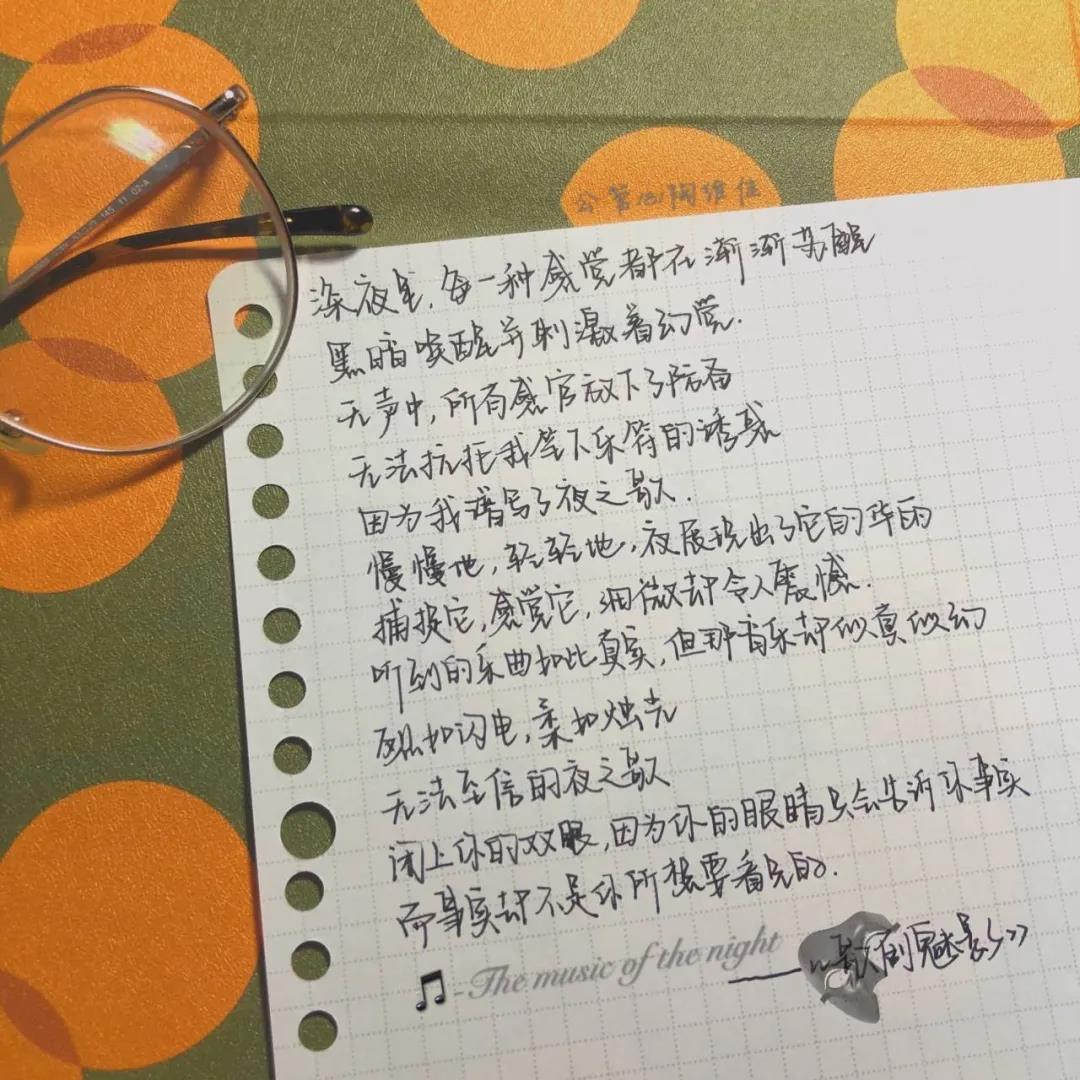 公管181陶维佳
深夜里,每一种感觉都在渐渐苏醒
黑暗唤醒并刺激着幻觉.
无声中,所有感官放下了防备
无法抗拒我笔下乐符的诱惑
因为我谱写了夜之歌.
慢慢地,轻轻地,夜展现出了它的华丽
捕捉它,感觉它,细微却令人震憾.
听到的乐曲如此真实,但那音乐却似真似幻
硬如闪电,柔如烛光
无法至信的夜之歌
闭上你的双眼,因为你的眼睛只会告诉你事实
而事实却不是你所想要看见的.
-The music of the night
——《歌剧魅影》
145 11 02-A